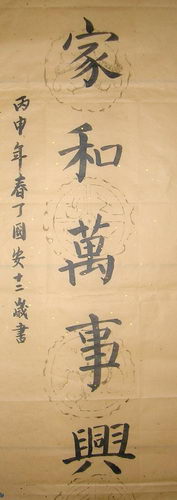 家和萬事興
丙申年春丁國安十二歲書